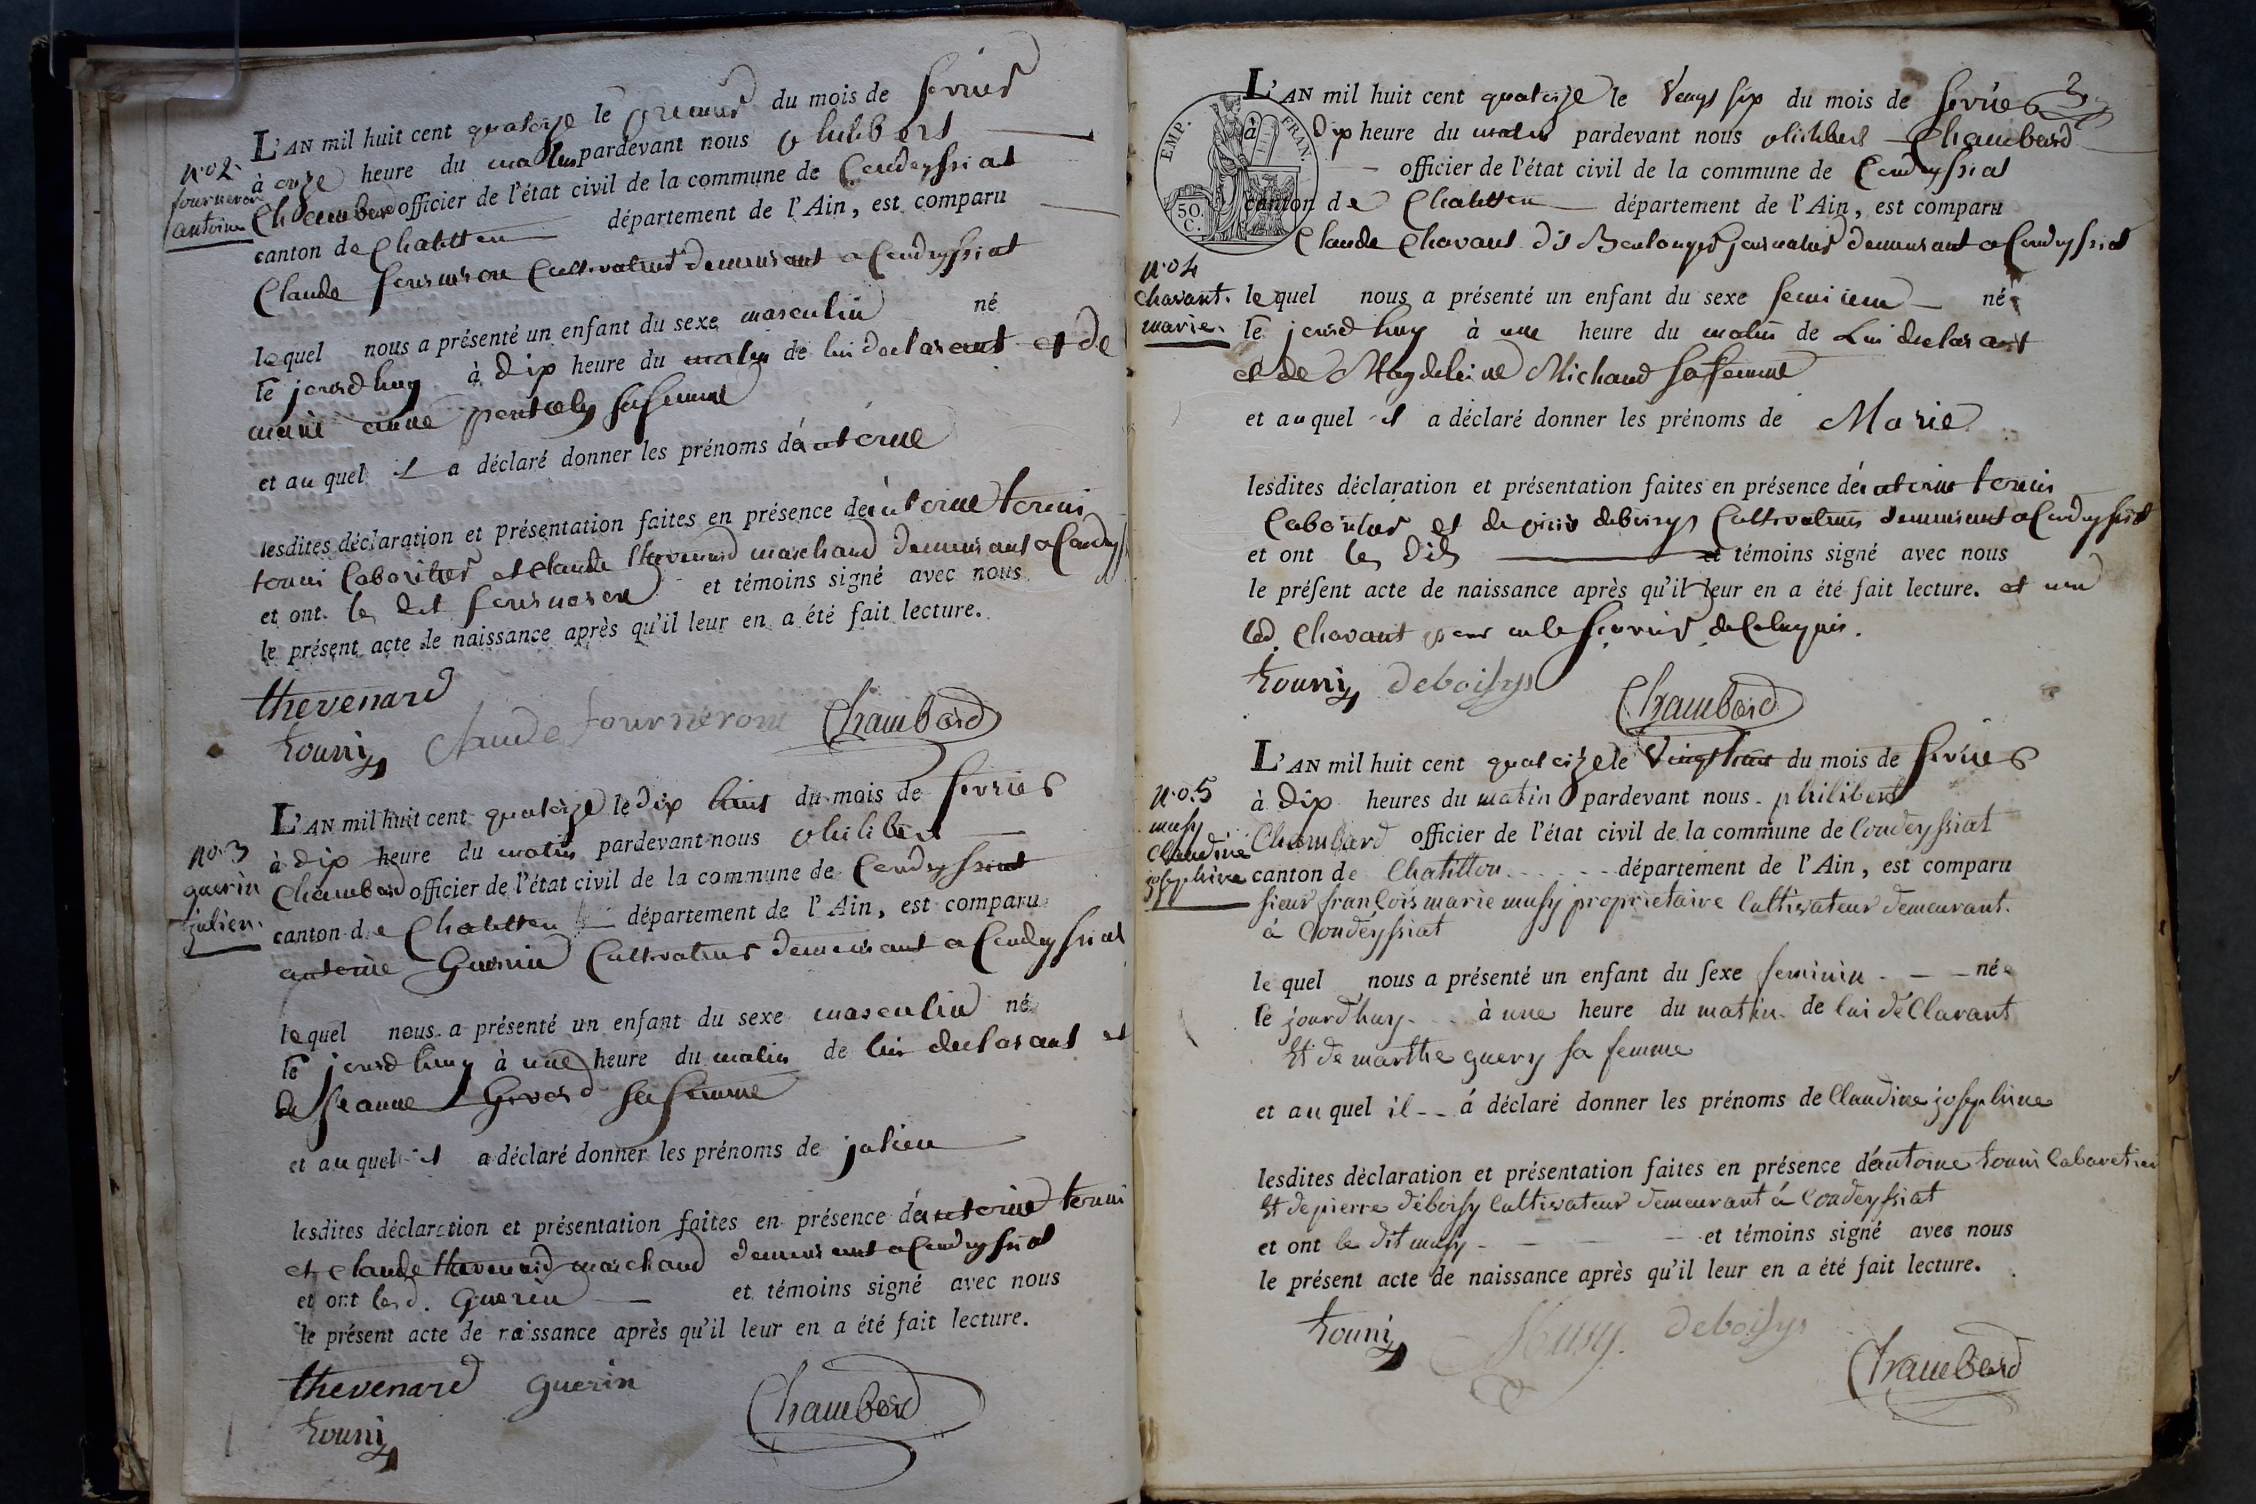 n.o 2.
fourneron
antoine
L'AN mil huit cent quatorze le premier du mois de fevrier
à onze heure du matin pardevant nous philibert
Chambard officier de l'état civil de la commune de Condeyssiat
canton de Chatillon département de l'Ain, est comparu
Claude fourneron Cultivateur demeurant a Condeyssiat
lequel nous a présenté un enfant du sexe masculin né
le jourdhuy à dix heure du matin de lui declarant et de
marie anne sa femme
et au quel il a déclaré donner les prénoms d'antoine
lesdites déclaration et présentation faites en présence d'antoine tonni
tonni et Claude thevenard marchand demeurant a Condeyssiat
et ont le dit fourneron et témoins signé avec nous
le présent acte de naissance après qu'il leur en a été fait lecture.
thevenard
tonni claude fourneron Chambard
n.o 3
guerin
julien.
L'AN mil huit cent quatorze le dix huit du mois de fevrier
à dix heure du matin pardevant nous philibert
Chambard officier de l'état civil de la commune de Condeyssiat
canton de Chatillon département de l'Ain, est comparu
antoine Guerin Cultivateur demeurant a Condeyssiat
lequel nous a présenté un enfant du sexe masculin né
le jourdhuy à une heure du matin de lui declarant et
de jeanne sa femme
et au quel il a déclaré donner les prénoms de julien
lesdites déclaration et présentation faites en présence d'antoine tonni
et claude thevenard marchand demeurant a Condeyssiat
et ont led. Guerin et témoins signé avec nous
le présent acte de naissance après qu'il leur en a été fait lecture.
thevenard guerin
tonni Chambard
3
EMP. FRAN.
50.
C.
L'AN mil huit cent quatorze le Vingt six du mois de fevrier
à Dix heure du matin pardevant nous philibert Chambard
officier de l'état civil de la commune de Condeyssiat
canton de Chatillon département de l'Ain, est comparu
Claude Chavant dit Boulonger journalier demeurant a Condeyssiat
n.o 4
chavant.
marie.
lequel nous a présenté un enfant du sexe feminin née
le jourdhuy à une heure du matin de Lui declarant
et de Magdeleine Michaud sa femme
et au quel il a déclaré donner les prénoms de Marie
lesdites déclaration et présentation faites en présence d'antoine tonni
et de pierre deboisy Cultivateur demeurant a Condeyssiat
et ont les dits et témoins signé avec nous
le présent acte de naissance après qu'il leur en a été fait lecture. et non
led. Chavant pour ne le
tonni deboisy
Chambard
n.o 5
musy
Claudine
josephine
L'AN mil huit cent quatorze le Vingt huit du mois de fevrier
à dix heures du matin pardevant nous philibert
Chambard officier de l'état civil de la commune de Condeyssiat
canton de Chatillon département de l'Ain, est comparu
sieur françois marie musy proprietaire Cultivateur demeurant.
à Condeyssiat
lequel nous a présenté un enfant du sexe feminin née
le jourdhuy à une heure du matin de lui déClarant
Et de marthe guery sa femme
et au quel il à déclaré donner les prénoms de Claudine josephine
lesdites déclaration et présentation faites en présence d'antoine tonni Cabaretier
Et de pierre deboisy Cultivateur demeurant à Condeyssiat
et ont le dit musy et témoins signé avec nous
le présent acte de naissance après qu'il leur en a été fait lecture.
tonni Musy. deboisy
Chambard